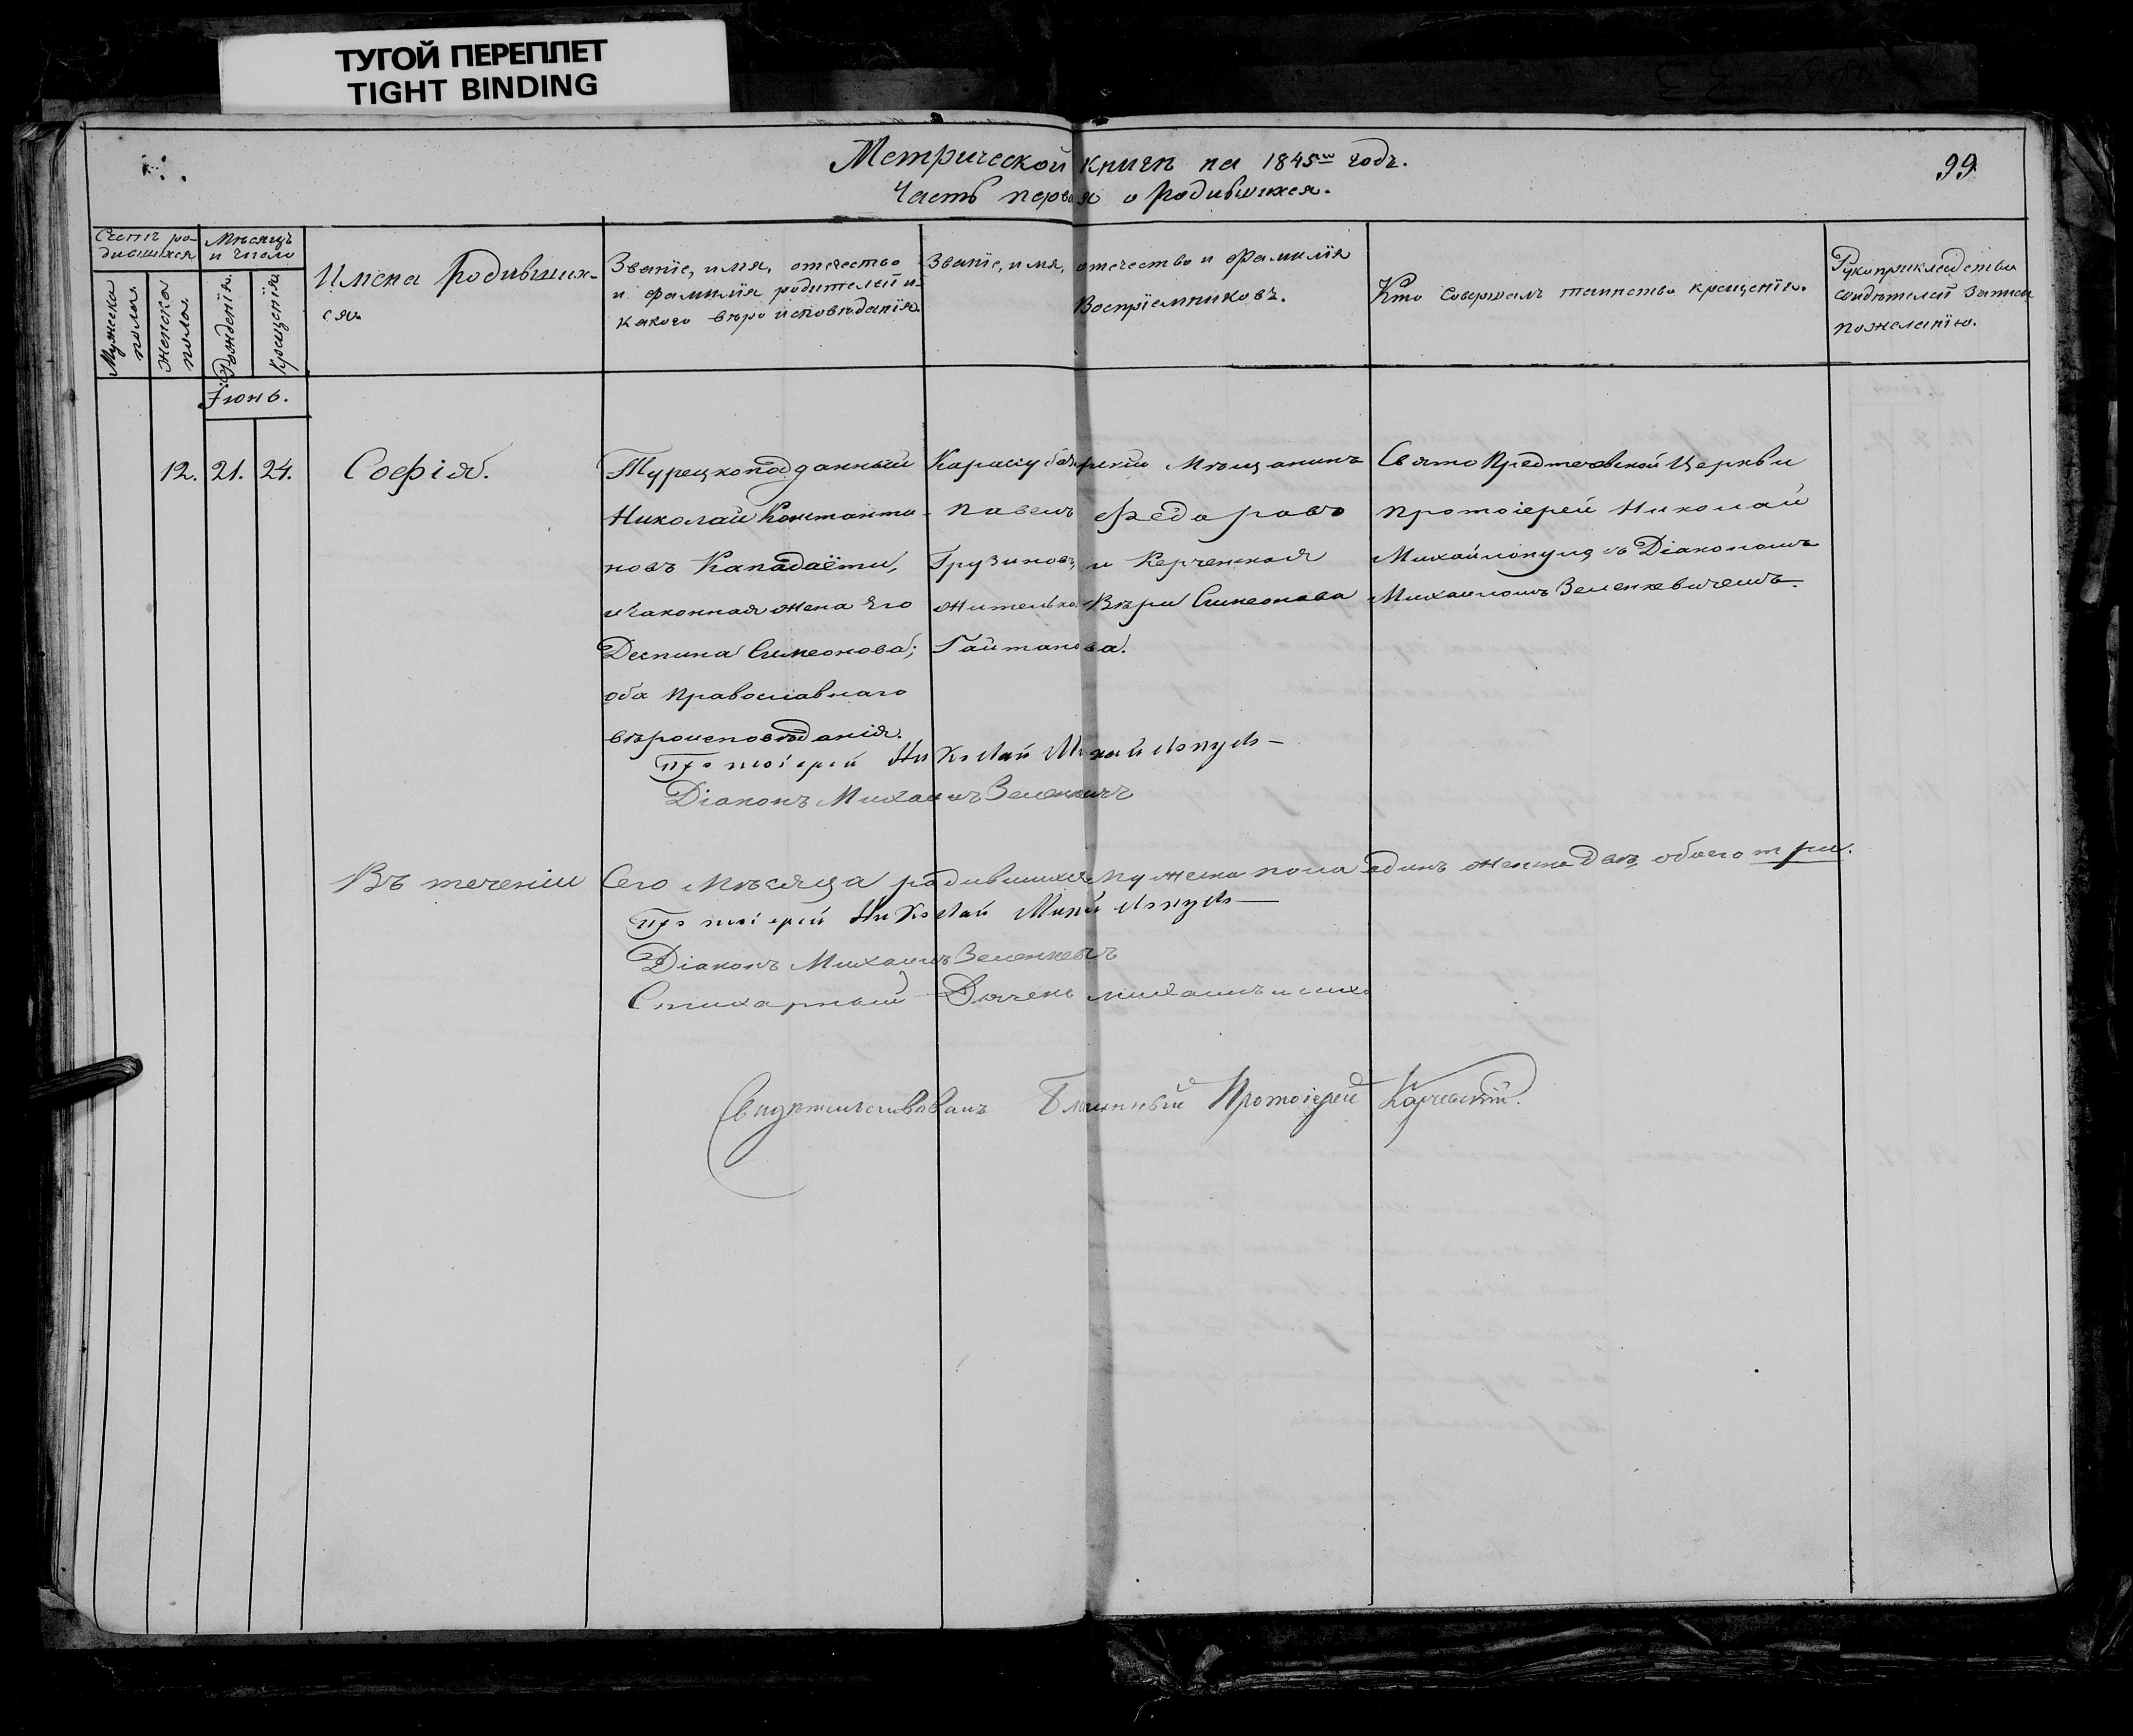 ТУГОЙ ПЕРЕПЛЕТ
TIGHT BINDING
Метрической книгѣ на 1845й годъ.
99
Часть первая о родившихся.
Счетъ ро-
дившихся
Мужеска
пола.
Женска
пола.
Мѣсяцъ
и число
Рожденія.
Крещенія
Имена родивших-
ся.
Званіе, имя, отечество
и фамилія родителей и
какого вѣроисповѣданія.
Званіе, имя, отечество и фамилія
Воспріемниковъ.
Кто совершалъ таинство крещенія.
Рукоприкладство
свидѣтелей записи
по желанію.
Іюнь.
12. 21. 24.
Софія.
Турецкоподданный
Николай Константи-
новъ Кападаёти,
и законная жена его
Деспина Симеонова;
оба православнаго
вѣроисповѣданія.
Карасубазарскій Мѣщанинъ
Павелъ Ѳедоровъ
Грузиновъ, и Керченская
жителька Вѣра Симеонова
Гайтанова.
Свято Предтечевской Церкви
протоіерей Николай
Михайлопуло съ Діакономъ
Михаиломъ Зеленкевичемъ.
Протоіерей Николай Михайлопуло
Діаконъ Михаилъ Зеленкевичъ
Въ теченіи сего мѣсяца родившихся мужеска пола одинъ женска двѣ, обоего три.
Протоіерей Николай Михайлопуло
Діаконъ Михаилъ Зеленкевичъ
Стихарный Дячекъ Михаилъ
Свидѣтельствовалъ Благочинный Протоіерей